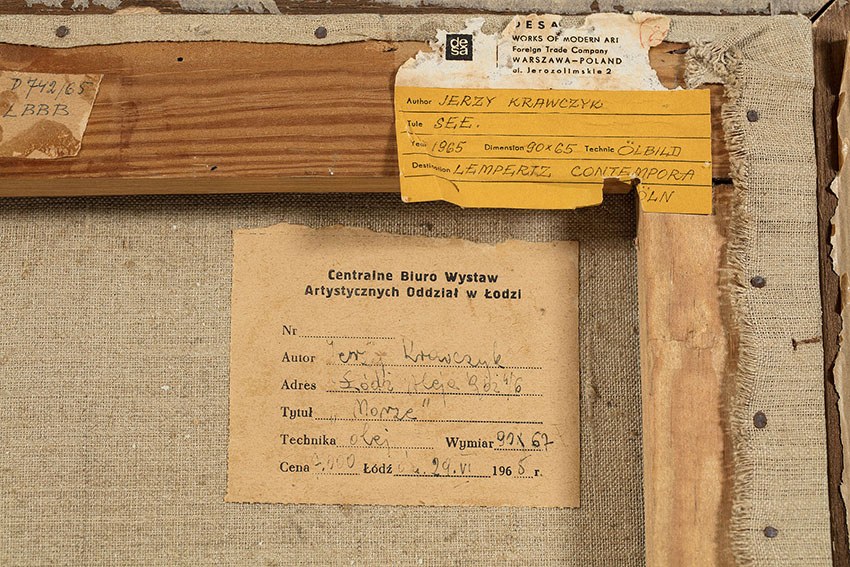 D 742/65
LBBB
de
sa
DESA
WORKS OF MODERN ART
Foreign Trade Company
WARSZAWA—POLAND
ul. Jerozolimskie 2
Author JERZY KRAWCZYK
Title SEE.
Year 1965 Dimension 90x65 Technic ÖLBILD
Destination LEMPERTZ CONTEMPORA
ÖLN
Centralne Biuro Wystaw
Artystycznych Oddział w Łodzi
Nr
Autor Jerzy Krawczyk
Adres Łódź
Tytuł „Morze"
Technika olej Wymiar 90x67
Cena 7.000 Łódź 29.VI 1965 r.